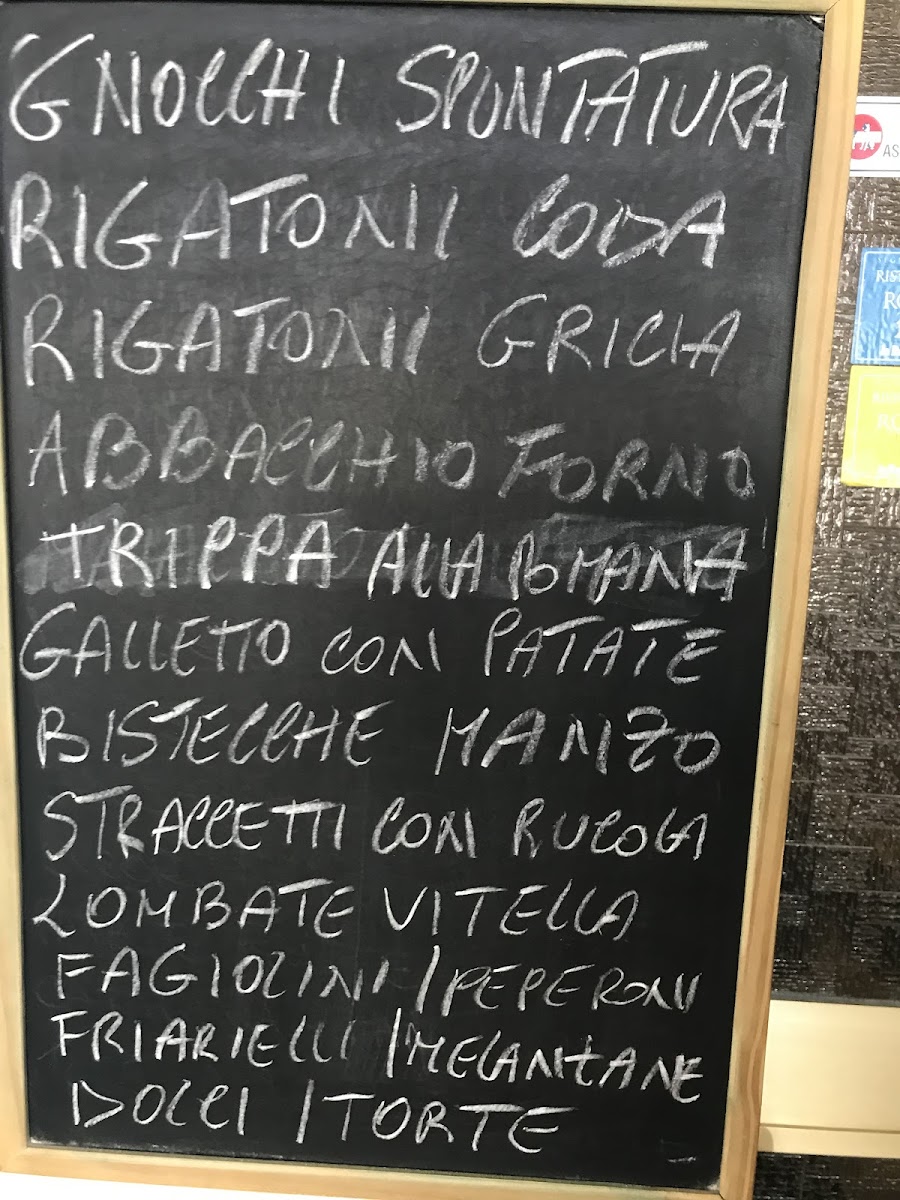 GNOCCHI SPUNTATURA
RIGATONI CODA
RIGATONI GRICIA
ABBACCHIO FORNO
TRIPPA ALLA ROMANA
GALLETTO CON PATATE
BISTECCHE MANZO
STRACCETTI CON RUCOLA
LOMBATE VITELLA
FAGIOLINI / PEPERONI
FRIARIELLI / MELANZANE
DOLCI / TORTE
AS
RIST
RO